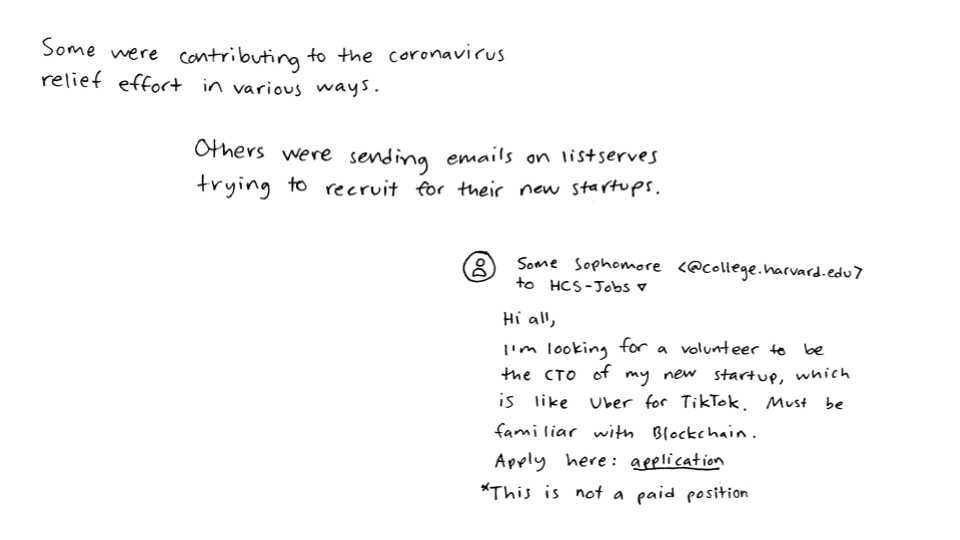 Some were contributing to the coronavirus
relief effort in various ways.
Others were sending emails on listserves
trying to recruit for their new startups.
Some Sophomore <@college.harvard.edu>
to HCS-Jobs ▿
Hi all,
I'm looking for a volunteer to be
the CTO of my new startup, which
is like Uber for TikTok. Must be
familiar with Blockchain.
Apply here: application
*This is not a paid position